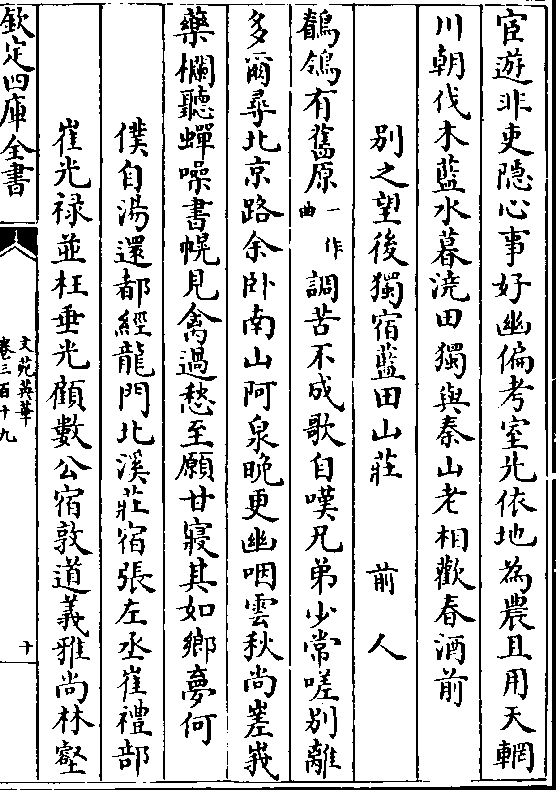 宦遊非吏隱心事好幽偏考室先依地為農且用天輞
川朝伐木藍水暮澆田獨與秦山老相歡春酒前
別之望後獨宿藍田山莊 前人
鶺鴒有舊原一作曲調苦不成歌自嘆兄弟少常嗟別離
多爾尋北京路余卧南山阿泉晚更幽咽雲秋尚嵳峩
藥欄聽蟬噪書幌見禽過愁至願甘寢其如鄉夢何
僕自湯還都經龍門北溪莊宿張左丞崔禮部
崔光禄並枉垂光顧數公宿敦道義雅尚林壑
欽定四庫全書
文苑英華
卷三百十九
十